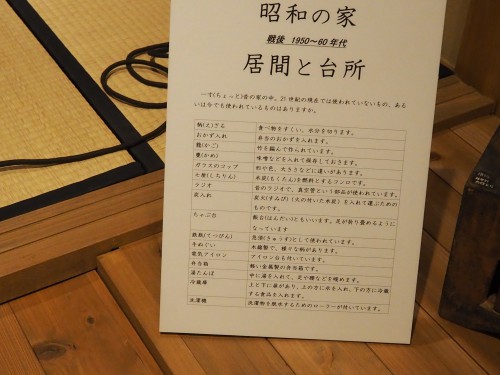 昭和の家
戦後 1950～60年代
居間と台所
一寸(ちょっと)昔の家の中、21世紀の現在では使われていないもの、ある
いは今でも使われているものはありますか。
柄(え)ざる 食べ物をすくい、水分を切ります。
おかず入れ 弁当のおかずを入れます。
籠(かご) 竹を編んで作られています。
甕(かめ) 味噌などを入れて保存しておきます。
ガラスのコップ 形や色、大きさなどに違いがあります。
七厘(しちりん) 木炭(もくたん)を燃料とするコンロです。
ラジオ 台のラジオで、真空管という部品が使われています。
炭入れ 炭火(すみび)(火の付いた木炭)を入れて運ぶための
ものです。
ちゃぶ台 飯台(はんだい)ともいいます。足が折り畳めるように
なっています
鉄瓶(てつびん) 急須(きゅうす)として使われています。
手ぬぐい 木綿製で、様々な柄があります。
電気アイロン アイロン台も付いています。
弁当箱 軽い金属製の弁当箱です。
湯たんぽ 中に湯を入れて、足や腰などを暖めます。
冷蔵庫 上と下に扉があり、上の方に氷を入れ、下の方に冷蔵
する食品を入れます。
洗濯機 洗濯物を脱水するためのローラーが付いています。